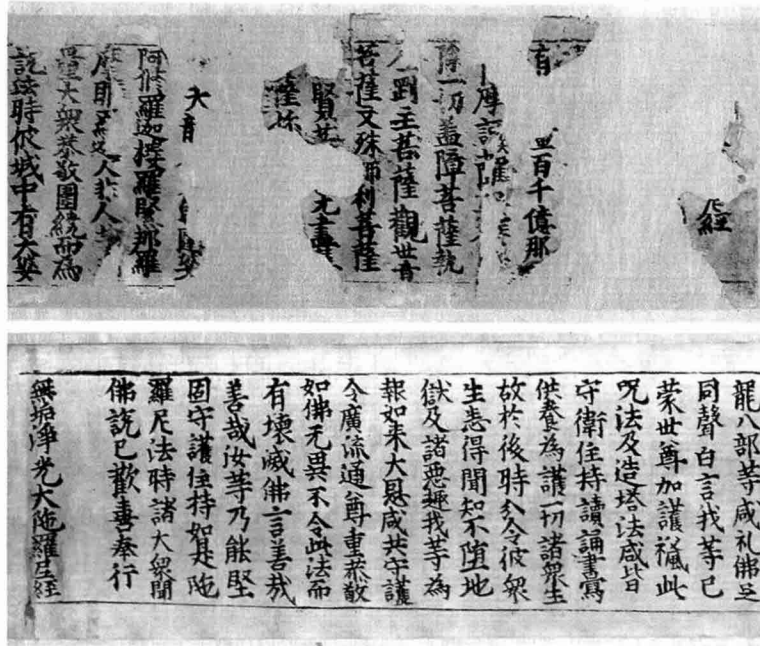 尼經
有 百千億那
摩訶薩
除一切盖障菩薩執
剛主菩薩觀世音
菩薩文殊師利菩薩
賢菩 无盡
薩弥
大 婆
阿修羅迦樓羅緊那羅
人非人等
量大衆恭敬圍繞而為
說法時彼城中有大婆
龍八部等咸礼佛足
同聲白言我等已
蒙世尊加護授此
呪法及造塔法咸皆
守衛住持讀誦書寫
供養為護一切諸衆生
故於後時分令彼衆
生悉得聞知不墮地
獄及諸惡趣我等為
報如来大恩咸共守護
令廣流通尊重恭敬
如佛无異不令此法而
有壞滅佛言善哉
善哉汝等乃能堅
固守護住持如是陁
羅尼法時諸大衆聞
佛說已歡喜奉行
無垢淨光大陁羅尼經